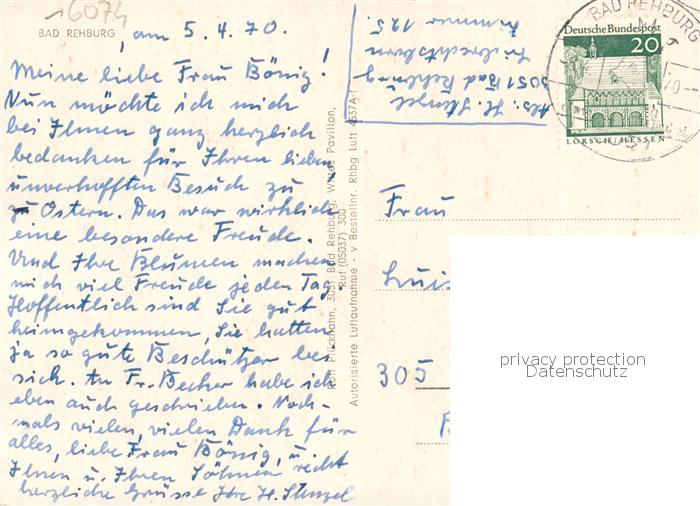 16074
BAD REHBURG
, am 5.4.70.
Meine liebe Frau Bönig!
Nun möchte ich mich
bei Ihnen ganz herzlich
bedanken für Ihren lieben
unverhofften Besuch zu
zu Ostern. Das war wirklich
eine besondere Freude.
Und Ihre Blumen machen
mich viel Freude jeden Tag.
Hoffentlich sind Sie gut
heimgekommen, Sie hatten
ja so gute Beschützer bei
sich. An Fr. Becher habe ich
eben auch geschrieben. Noch-
mals vielen, vielen Dank für
alles, liebe Frau Bönig, u.
Ihnen u. Ihren Söhnen recht
herzliche Grüsse Ihre H. Stenzel
Abs: H. Stenzel
3051 Bad Rehburg
Friedrichshorn
Zimmer 125
Rolf Plückhahn, 3051 Bad Rehburg, Pavillon,
Ruf (05037) 300
Autorisierte Luftaufnahme - v Bestellnr. Rhbg Luft 4637A-1
BAD REHBURG
Deutsche Bundespost
20
LORSCH/HESSEN
Frau
Luis
305
privacy protection
Datenschutz